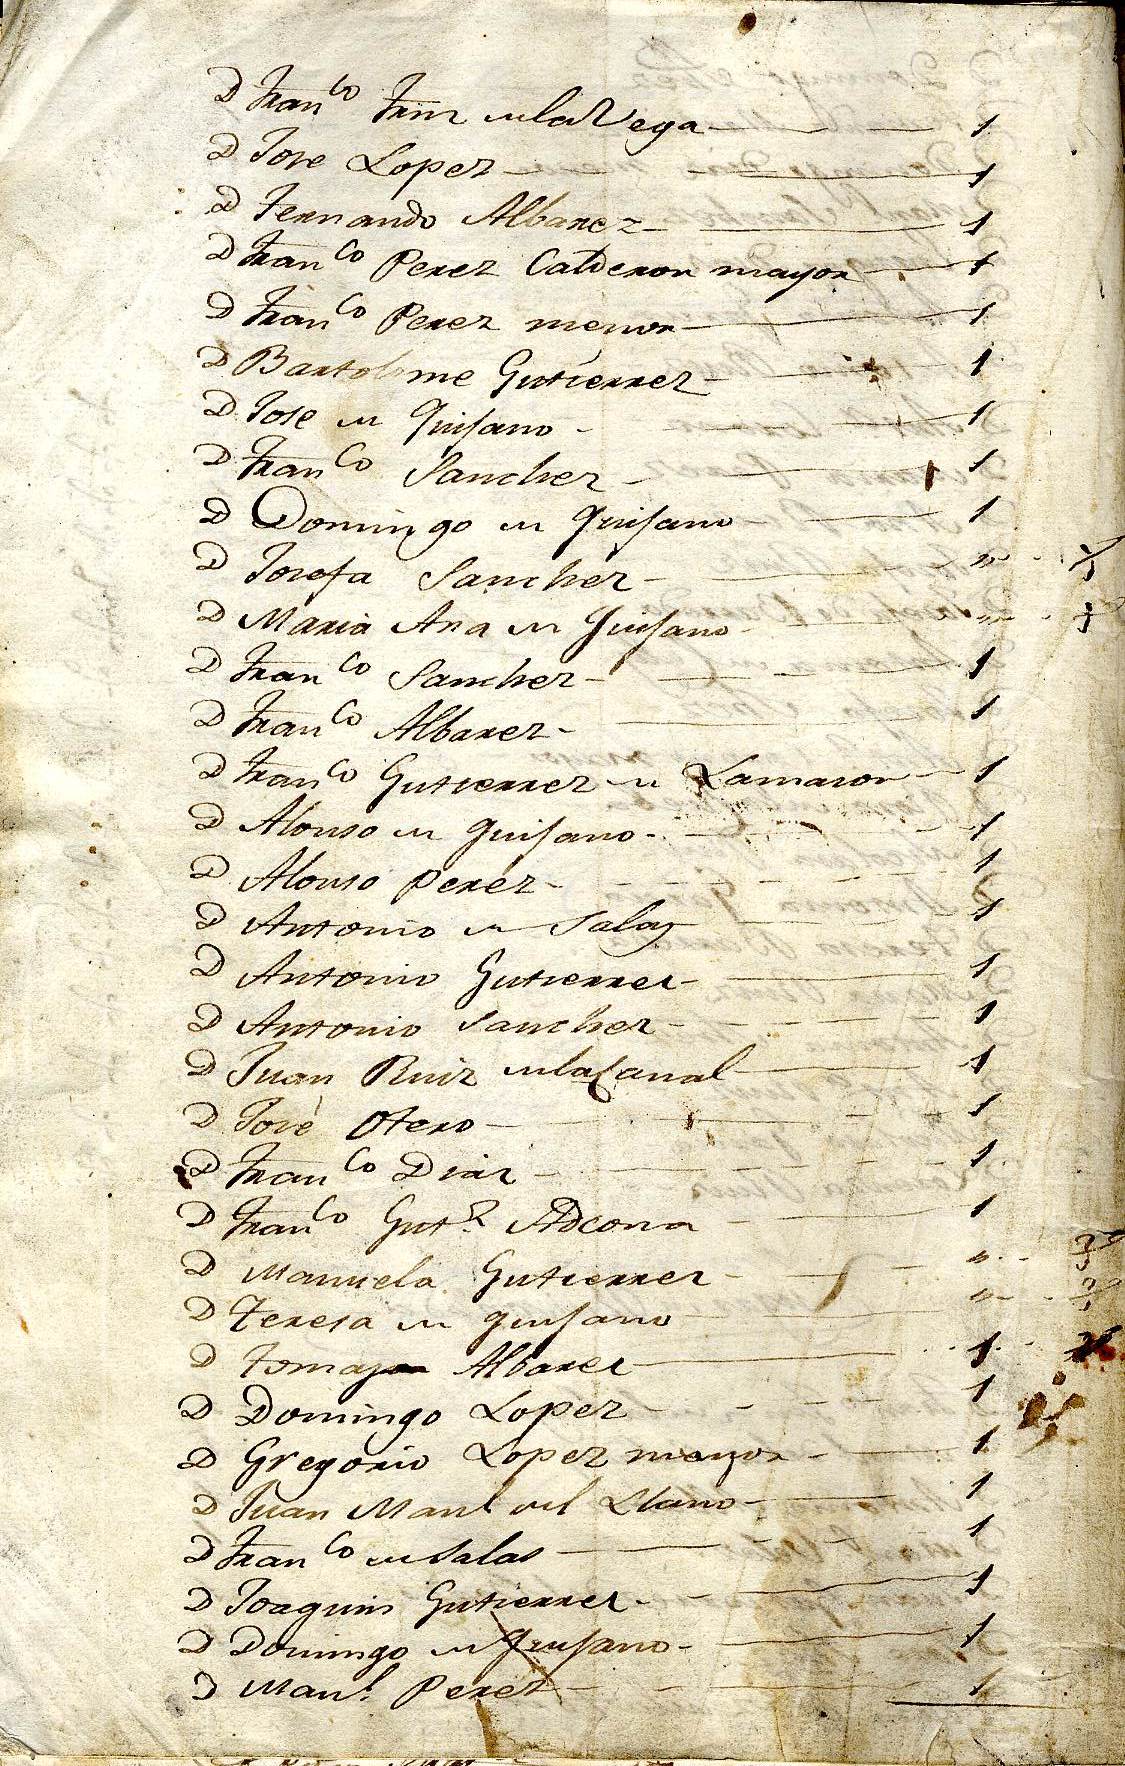 D Fran.co Frnz de la Vega 1
D Jose Lopez 1
D Fernando Albarez 1
D Fran.co Perez Calderon mayor 1
D Fran.co Perez menor 1
D Bartolome Gutierrez 1
D Jose de Quijano 1
D Fran.co Sanchez 1
D Domingo de Quijano 1
D Josefa Sanchez "
D Maria Ana de Quijano "
D Fran.co Sanchez 1
D Fran.co Albarez 1
D Fran.co Gutierrez de Lamason 1
D Alonso de Quijano 1
D Alonso Perez 1
D Antonio de Salas 1
D Antonio Gutierrez 1
D Antonio Sanchez 1
D Juan Ruiz de la Canal 1
D Josè Otero 1
D Fran.co Diaz 1
D Fran.co Gut.z Adcona 1
D Manuela Gutierrez "
D Teresa de Quijano "
D Tomas Albarez 1
D Domingo Lopez 1
D Gregorio Lopez mayor 1
D Juan Manl del Llano 1
D Fran.co de Salas 1
D Joaquin Gutierrez 1
D Domingo de Quijano 1
D Man.l Perez 1